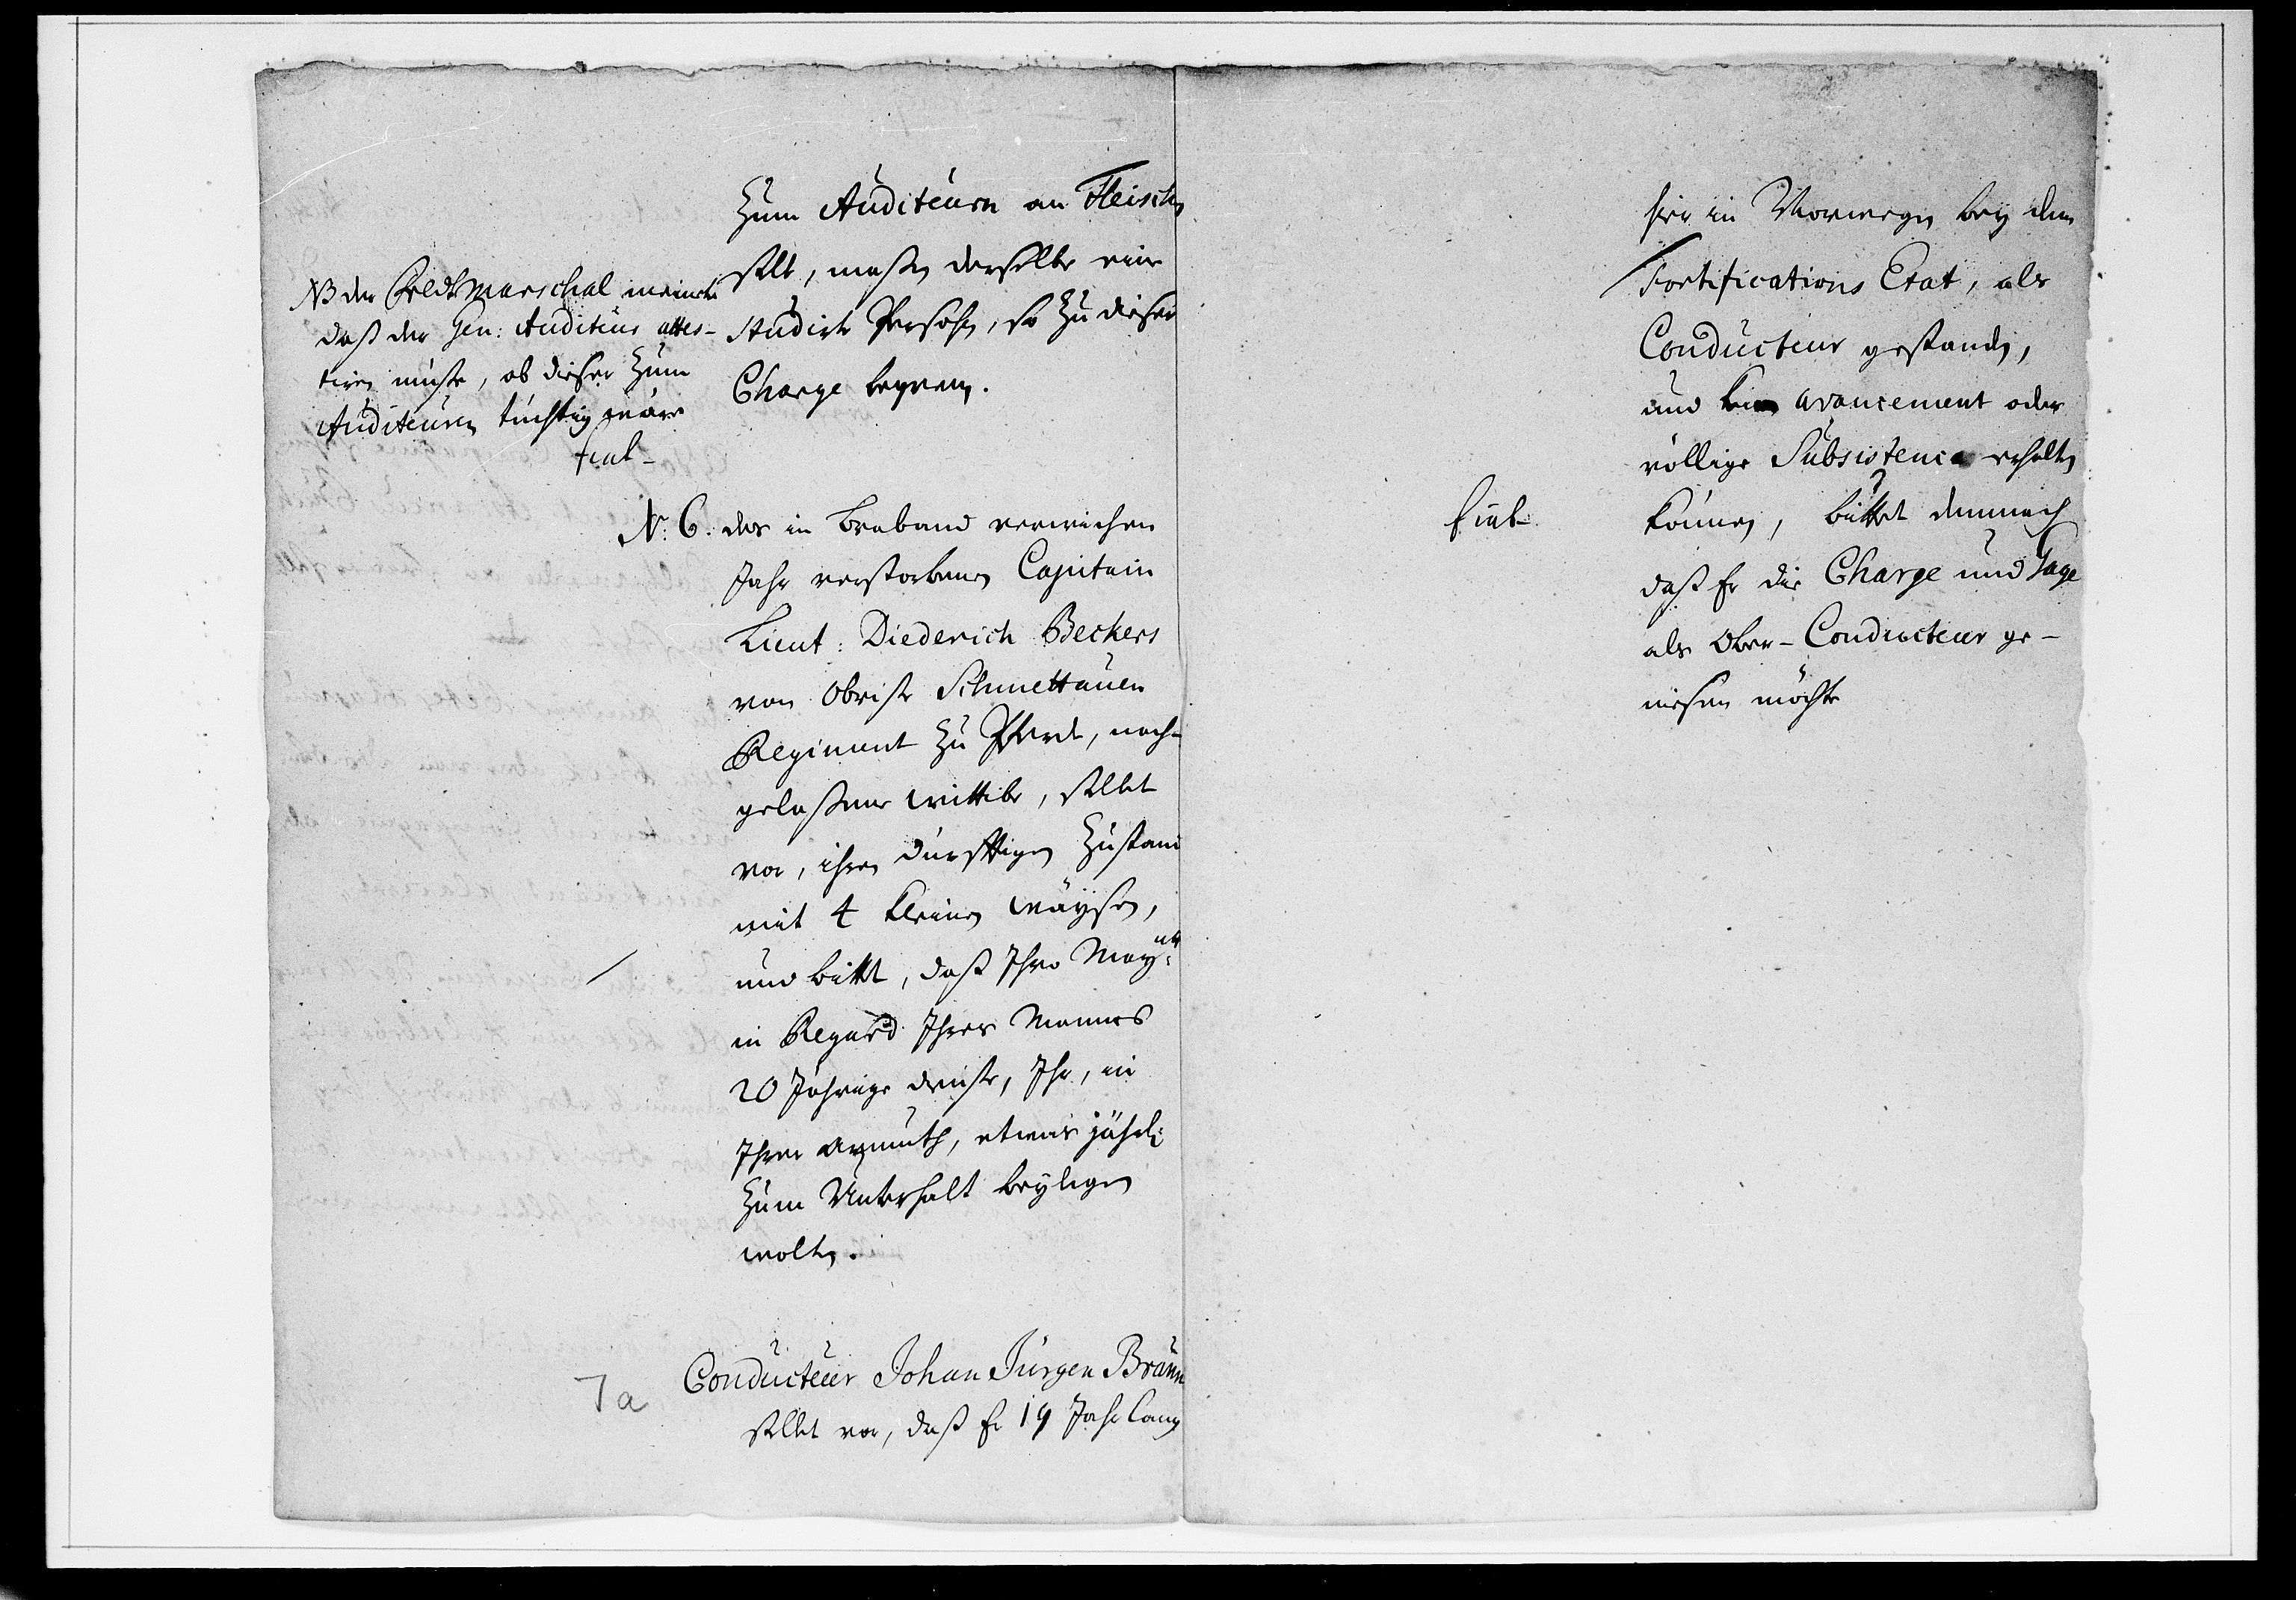 Zum Auditeurn an Fleischen
stelle, maßen derselbe eine
Studirte Persohn, so zu dieser
Charge bequem.
NB der Feldt Marschal meinete
daß der Gen: Auditeur attes-
tiren müste, ob dieser zum
Auditeuren tüchtig wäre
fiat-
N: 6: des in Braband verwichen
Jahr verstorbenen Capitain
Lieut: Diederich Beckers
von Obrist Schmettauen
Regiment zu Pferde, nach-
gelaßene wittibe, stellet
vor, ihren dürfftigen Zustand
mit 4 kleinen wäysen,
und bittet, daß Ihro Mayᵗᵗ:
in Regard Ihres Mannes
20 Jährige dienste, Ihr, in
Ihrer armuth, etwas jährl:
zum Unterhalt beylegen
wolten.
7a Conducteur Johan Jürgen Braun
stellet vor, daß Er 19 Jahr lang
hier in Norwegen bey dem
Fortifications Etat, als
Conducteur gestanden,
und kein avancement oder
völlige Subsistence erhalten
fiat-
können, bittet demnach
daß Er die Charge und Gage
als Ober-Conducteur ge-
niesen möchte